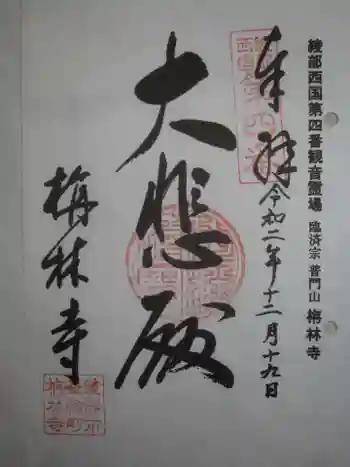 綾部西国第四番観音霊場 臨済宗 普門山 梅林寺
奉拝 令和二年十二月十九日
大悲殿
梅林寺